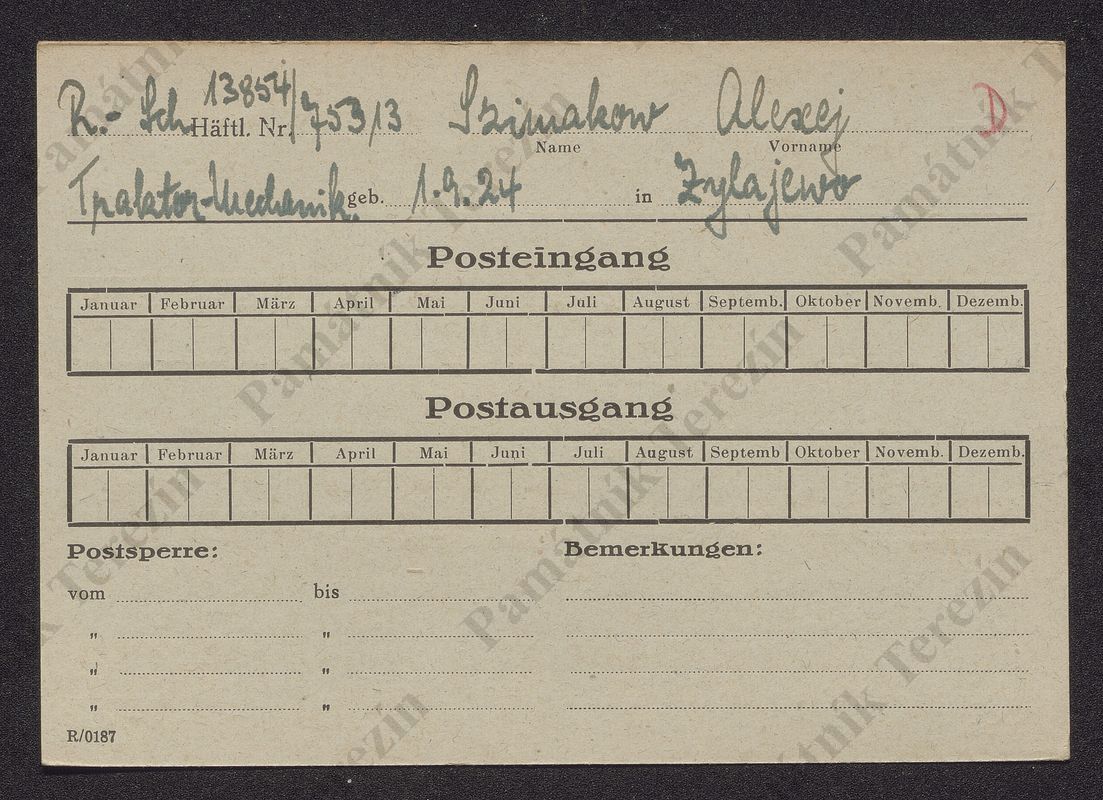 R.- Sch. Häftl. Nr. 13854/75313 Szimakow Alexej D
Name Vorname
Traktor-Mechanik. geb. 1.9.24 in Zylajewo
Posteingang
Januar Februar März April Mai Juni Juli August Septemb. Oktober Novemb. Dezemb.
Postausgang
Januar Februar März April Mai Juni Juli August Septemb Oktober Novemb. Dezemb.
Postsperre: Bemerkungen:
vom bis
" "
" "
" "
R/0187
Památník Terezín